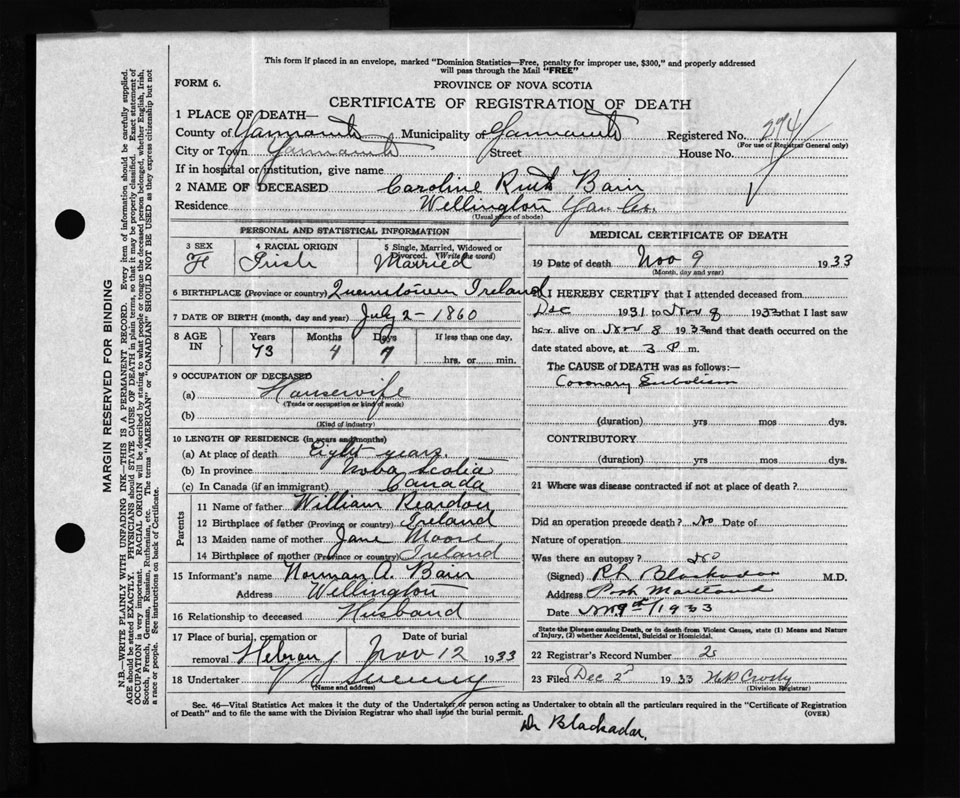 This form if placed in an envelope, marked "Dominion Statistics—Free, penalty for improper use, $300," and properly addressed
will pass through the Mail "FREE"
FORM 6.
PROVINCE OF NOVA SCOTIA
CERTIFICATE OF REGISTRATION OF DEATH
1 PLACE OF DEATH—
County of Yarmouth Municipality of Yarmouth Registered No. 294
(For use of Registrar General only)
City or Town Yarmouth Street House No.
If in hospital or institution, give name
2 NAME OF DECEASED Caroline Ruth Bain
Residence Wellington Yar Co.
(Usual place of abode)
PERSONAL AND STATISTICAL INFORMATION
3 SEX
F
4 RACIAL ORIGIN
Irish
5 Single, Married, Widowed or
Divorced. (Write the word)
Married
6 BIRTHPLACE (Province or country) Queenstown Ireland
7 DATE OF BIRTH (month, day and year) July 2 - 1860
8 AGE
IN
Years
73
Months
4
Days
7
If less than one day,
hrs. or min.
9 OCCUPATION OF DECEASED
(a) Housewife
(Trade or occupation or kind of work)
(b)
(Kind of industry)
10 LENGTH OF RESIDENCE (in years and months)
(a) At place of death Eight years.
(b) In province Nova Scotia
(c) In Canada (if an immigrant) Canada
Parents
11 Name of father William Reardon
12 Birthplace of father (Province or country) Ireland
13 Maiden name of mother Jane Moore
14 Birthplace of mother (Province or country) Ireland
15 Informant's name Norman A. Bain
Address Wellington
16 Relationship to deceased Husband
17 Place of burial, cremation or
removal Hebron
Date of burial
Nov 12 1933
18 Undertaker V J Sweeny
(Name and address)
MEDICAL CERTIFICATE OF DEATH
19 Date of death Nov 9 1933
(Month, day and year)
I HEREBY CERTIFY that I attended deceased from
Dec 1931 to Nov 8 1933 that I last saw
her alive on Nov 8 1933 and that death occurred on
date stated above, at 3 P m.
The CAUSE of DEATH was as follows:—
Coronary Embolism
(duration) yrs mos dys.
CONTRIBUTORY
(duration) yrs mos dys.
21 Where was disease contracted if not at place of death?
Did an operation precede death? No Date of
Nature of operation
Was there an autopsy? No
(Signed) R L Blackadar M.D.
Address Port Maitland
Date Nov 9th/1933
State the Disease causing Death, or in death from Violent Causes, state (1) Means and Nature
of Injury, (2) whether Accidental, Suicidal or Homicidal.
22 Registrar's Record Number 2
23 Filed Dec 2 1933 Crosby
(Division Registrar)
Sec. 46—Vital Statistics Act makes it the duty of the Undertaker or person acting as Undertaker to obtain all the particulars required in the "Certificate of Registration
of Death" and to file the same with the Division Registrar who shall issue the burial permit. (OVER)
Dr Blackadar.
MARGIN RESERVED FOR BINDING
N.B.—WRITE PLAINLY WITH UNFADING INK—THIS IS A PERMANENT RECORD. Every item of information should be carefully supplied.
AGE should be stated EXACTLY. PHYSICIANS should STATE CAUSE OF DEATH in plain terms, so that it may be properly classified. Exact statement of
OCCUPATION is very important. RACIAL ORIGIN will be described by stating to what people or tongue the deceased person belonged, whether English, Irish,
Scotch, French, German, Russian, Ruthenian, etc. The terms "AMERICAN" or "CANADIAN" SHOULD NOT BE USED as they express citizenship but not
a race or people. See instructions on back of Certificate.